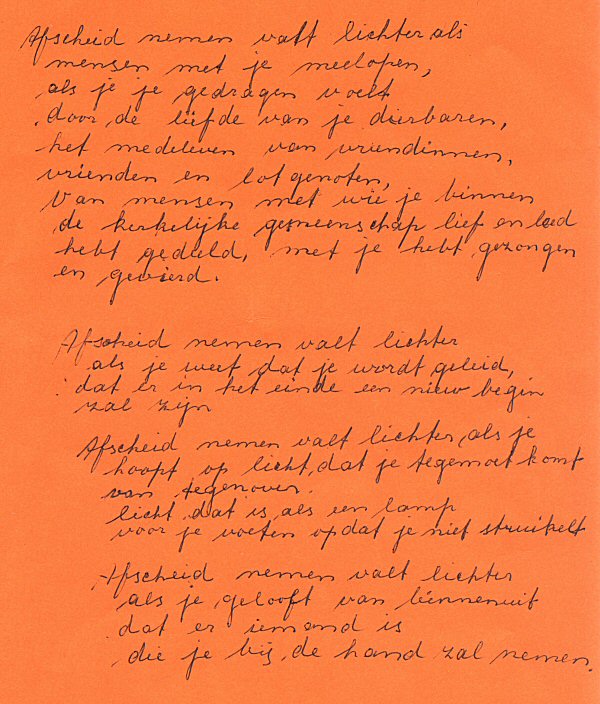 Afscheid nemen valt lichter als
mensen met je meelopen,
als je je gedragen voelt
door de liefde van je dierbaren,
het medeleven van vriendinnen,
vrienden en lotgenoten,
Van mensen met wie je binnen
de kerkelijke gemeenschap lief en leed
hebt gedeeld, met je hebt gezongen
en gevierd.
Afscheid nemen valt lichter
als je weet dat je wordt geleid,
dat er in het einde een nieuw begin
zal zijn
Afscheid nemen valt lichter, als je
hoopt op licht, dat je tegemoet komt
van tegenover.
licht dat is als een lamp
voor je voeten opdat je niet struikelt
Afscheid nemen valt lichter
als je gelooft van binnenuit
dat er iemand is
die je bij de hand zal nemen.